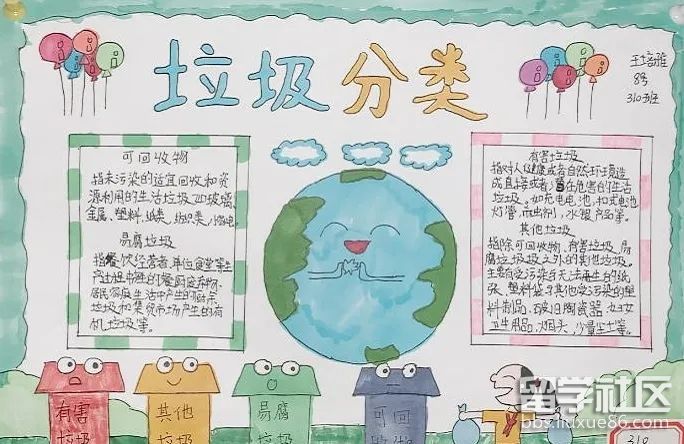 垃圾分类
王培雅
8号
310班
可回收物
指未污染的适宜回收和资
源利用的生活垃圾,如玻璃、
金属、塑料、纸类、
易腐垃圾
指餐饮经营者、单位食堂等生
产过程中产生的
居民家庭生活中产生的
垃圾和集贸市场产生的有
机垃圾等。
有害垃圾
指对人健康或者自然环境造
成直接或者潜在危害的生活
垃圾。如充电电池、扣式电池
灯管、杀虫剂、水银产品等。
其他垃圾
指除可回收物、有害垃圾、易
腐垃圾及之外的其他垃圾。
主要有受污染与无法再生的纸
张、塑料袋与其他受污染的塑
料制品、破旧陶瓷器、妇女
卫生用品、烟头、少量尘土等。
有害
垃圾
其他
垃圾
易腐
垃圾
可回
310
留学社区
bbs.liuxue86.com